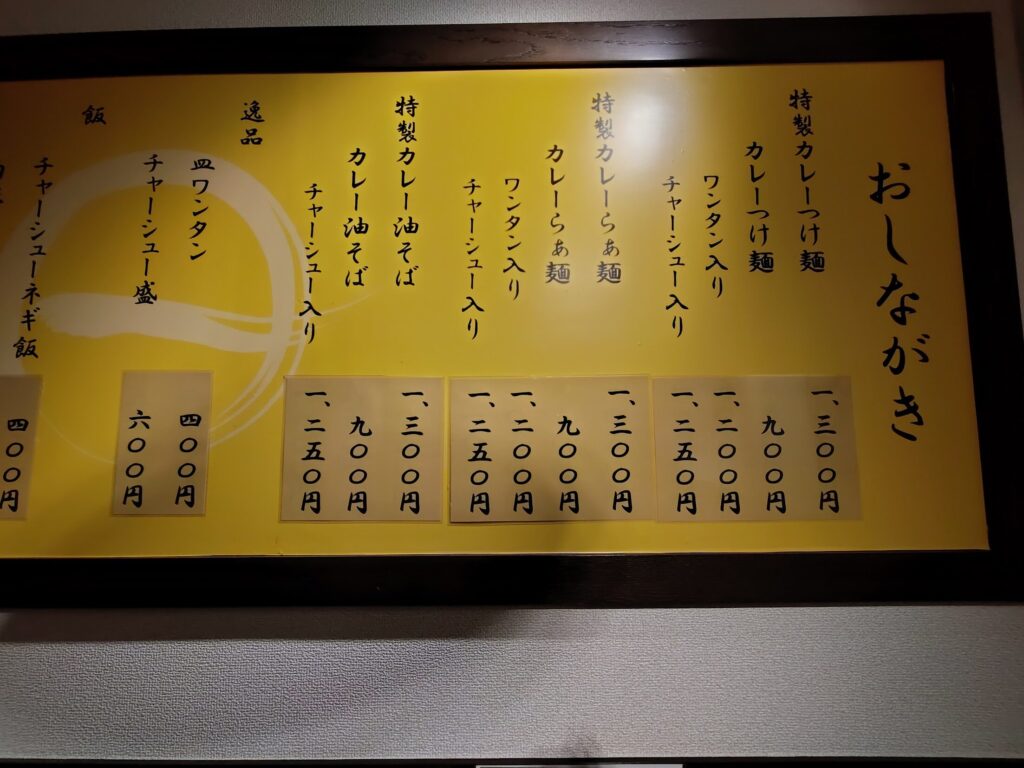 おしながき
特製カレーつけ麺 一、三〇〇円
カレーつけ麺 九〇〇円
ワンタン入り 一、二〇〇円
チャーシュー入り 一、二五〇円
特製カレーらぁ麺 一、三〇〇円
カレーらぁ麺 九〇〇円
ワンタン入り 一、二〇〇円
チャーシュー入り 一、二五〇円
特製カレー油そば 一、三〇〇円
カレー油そば 九〇〇円
チャーシュー入り 一、二五〇円
逸品
皿ワンタン 四〇〇円
チャーシュー盛 六〇〇円
飯
チャーシューネギ飯 四〇〇円